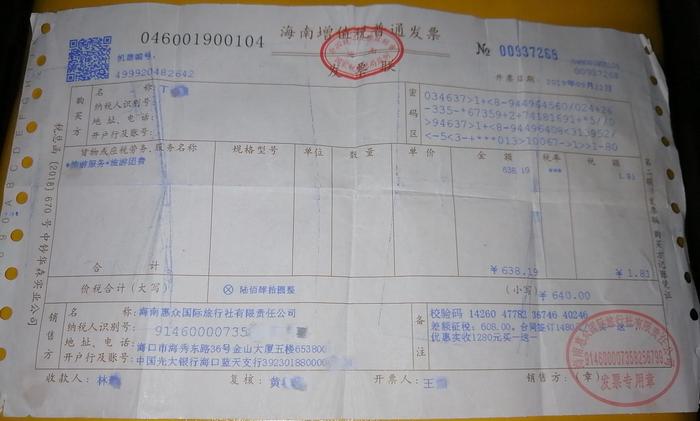 046001900104
海南增值税普通发票
发票联
№ 00937268
机器编号:
499920482642
00937268
开票日期: 2019年09月22日
购买方
名 称: 丁
纳税人识别号:
地址、电话:
开户行及账号:
密码区
034637>1+<8-944944560/024+26
-335-*67359+2+74181691+*5//0
>94637>1+<8-94496408<313952/
<-5<3-+***013>10067->1>>1-80
货物或应税劳务、服务名称 规格型号 单位 数量 单价 金额 税率 税额
*旅游服务*旅游团费 638.19 *** 1.81
合计 ¥638.19 ¥1.81
价税合计(大写) ⊗ 陆佰肆拾圆整 (小写) ¥640.00
销售方
名 称: 海南惠众国际旅行社有限责任公司
纳税人识别号: 91460000735
地址、电话: 海口市海秀东路36号金山大厦五楼653800
开户行及账号: 中国光大银行海口蓝天支行392301880000
备注
校验码 14260 47782 36746 40246
差额征税: 608.00. 合同签订1480 送一
优惠实收1280元买一送一
收款人: 林 复核: 黄 开票人: 王 销售方: (章)
税总函〔2018〕670号中钞华森实业公司
第二联:发票联 购买方记账凭证
海南惠众国际旅行社有限责任公司
发票专用章